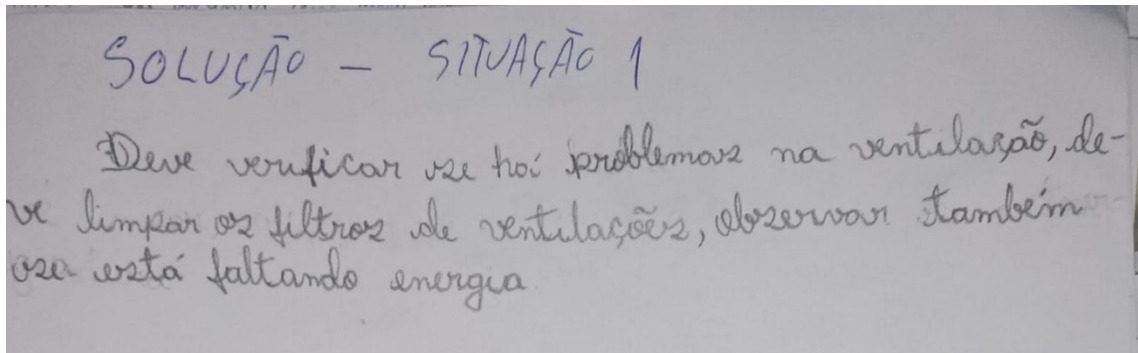 SOLUÇÃO - SITUAÇÃO 1
Deve verificar se há problemas na ventilação, de-
ve limpar os filtros de ventilações, observar também
se está faltando energia